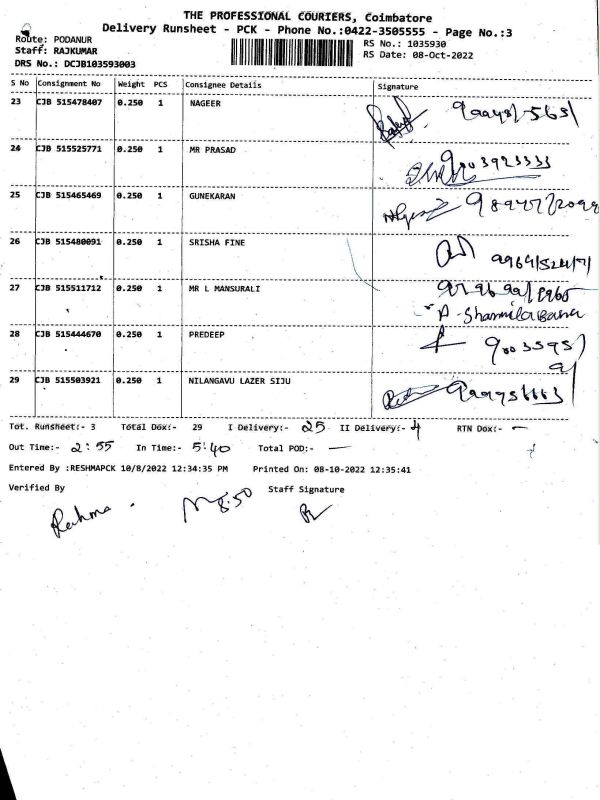 THE PROFESSIONAL COURIERS, Coimbatore
Delivery Runsheet - PCK - Phone No.:0422-3505555 - Page No.:3
Route: PODANUR
RS No.: 1035930
Staff: RAJKUMAR
RS Date: 08-Oct-2022
DRS No.: DCJB103593003
S No Consignment No Weight PCS Consignee Details Signature
23 CJB 515478407 0.250 1 NAGEER
24 CJB 515525771 0.250 1 MR PRASAD 9003923333
25 CJB 515465469 0.250 1 GUNEKARAN
26 CJB 515480091 0.250 1 SRISHA FINE
27 CJB 515511712 0.250 1 MR L MANSURALI
A - Sharmila Banu
28 CJB 515444670 0.250 1 PREDEEP
29 CJB 515503921 0.250 1 NILANGAVU LAZER SIJU
Tot. Runsheet:- 3 Total Dox:- 29 I Delivery:- 25 II Delivery:- 4 RTN Dox:- —
Out Time:- 2:55 In Time:- 5:40 Total POD:- —
Entered By :RESHMAPCK 10/8/2022 12:34:35 PM Printed On: 08-10-2022 12:35:41
Verified By Staff Signature
8:50